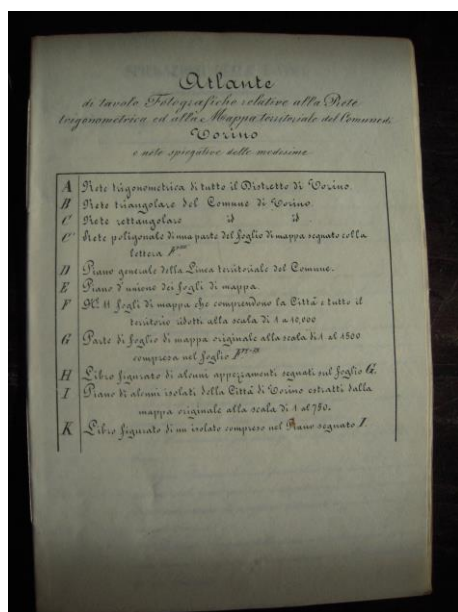 Atlante
di tavole Fotografiche relative alla Rete
trigonometrica ed alla Mappa territoriale del Comune di
Torino
e note spiegative delle medesime
A Rete trigonometrica di tutto il Distretto di Torino.
B Rete triangolare del Comune di Torino.
C Rete rettangolare id id.
C' Rete poligonale di una parte del foglio di mappa segnato colla
lettera F
D Piano generale della Linea territoriale del Comune.
E Piano d'unione dei fogli di mappa.
F N.º 11 fogli di mappa che comprendono la Città e tutto il
territorio ridotti alla scala di 1 a 10,000
G Parte di foglio di mappa originale alla scala di 1 al 1500
compresa nel foglio F
H Libro figurato di alcuni appezzamenti segnati sul foglio G.
I Piano di alcuni isolati della Città di Torino estratti dalla
mappa originale alla scala di 1 al 750.
K Libro figurato di un isolato compreso nel Piano segnato I.